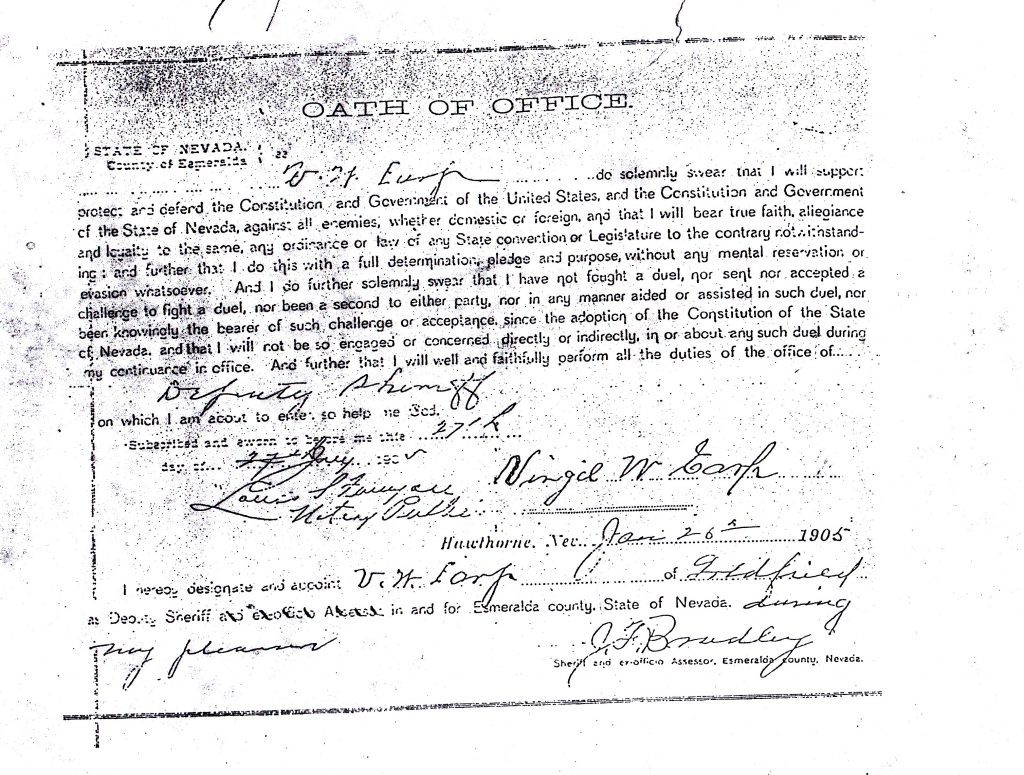 OATH OF OFFICE.
STATE OF NEVADA.
County of Esmeralda ss
V. W. Earp do solemnly swear that I will support
protect and defend the Constitution and Government of the United States, and the Constitution and Government
of the State of Nevada, against all enemies, whether domestic or foreign, and that I will bear true faith, allegiance
and loyalty to the same, any ordinance or law of any State convention or Legislature to the contrary notwithstand-
ing; and further that I do this with a full determination, pledge and purpose, without any mental reservation or
evasion whatsoever. And I do further solemnly swear that I have not fought a duel, nor sent nor accepted a
challenge to fight a duel, nor been a second to either party, nor in any manner aided or assisted in such duel, nor
been knowingly the bearer of such challenge or acceptance, since the adoption of the Constitution of the State
of Nevada, and that I will not be so engaged or concerned directly or indirectly, in or about any such duel during
my continuance in office. And further that I will well and faithfully perform all the duties of the office of
Deputy Sheriff
on which I am about to enter, so help me God.
Subscribed and sworn to before me this 27th
day of 190
Virgil W Earp
Louis
Notary Public
Hawthorne, Nev. Jan 26th 1905
I hereby designate and appoint V. W. Earp of Goldfield
as Deputy Sheriff and ex-officio Assessor in and for Esmeralda county, State of Nevada. during
my pleasure
J. F. Bradley
Sheriff and ex-officio Assessor, Esmeralda County, Nevada.